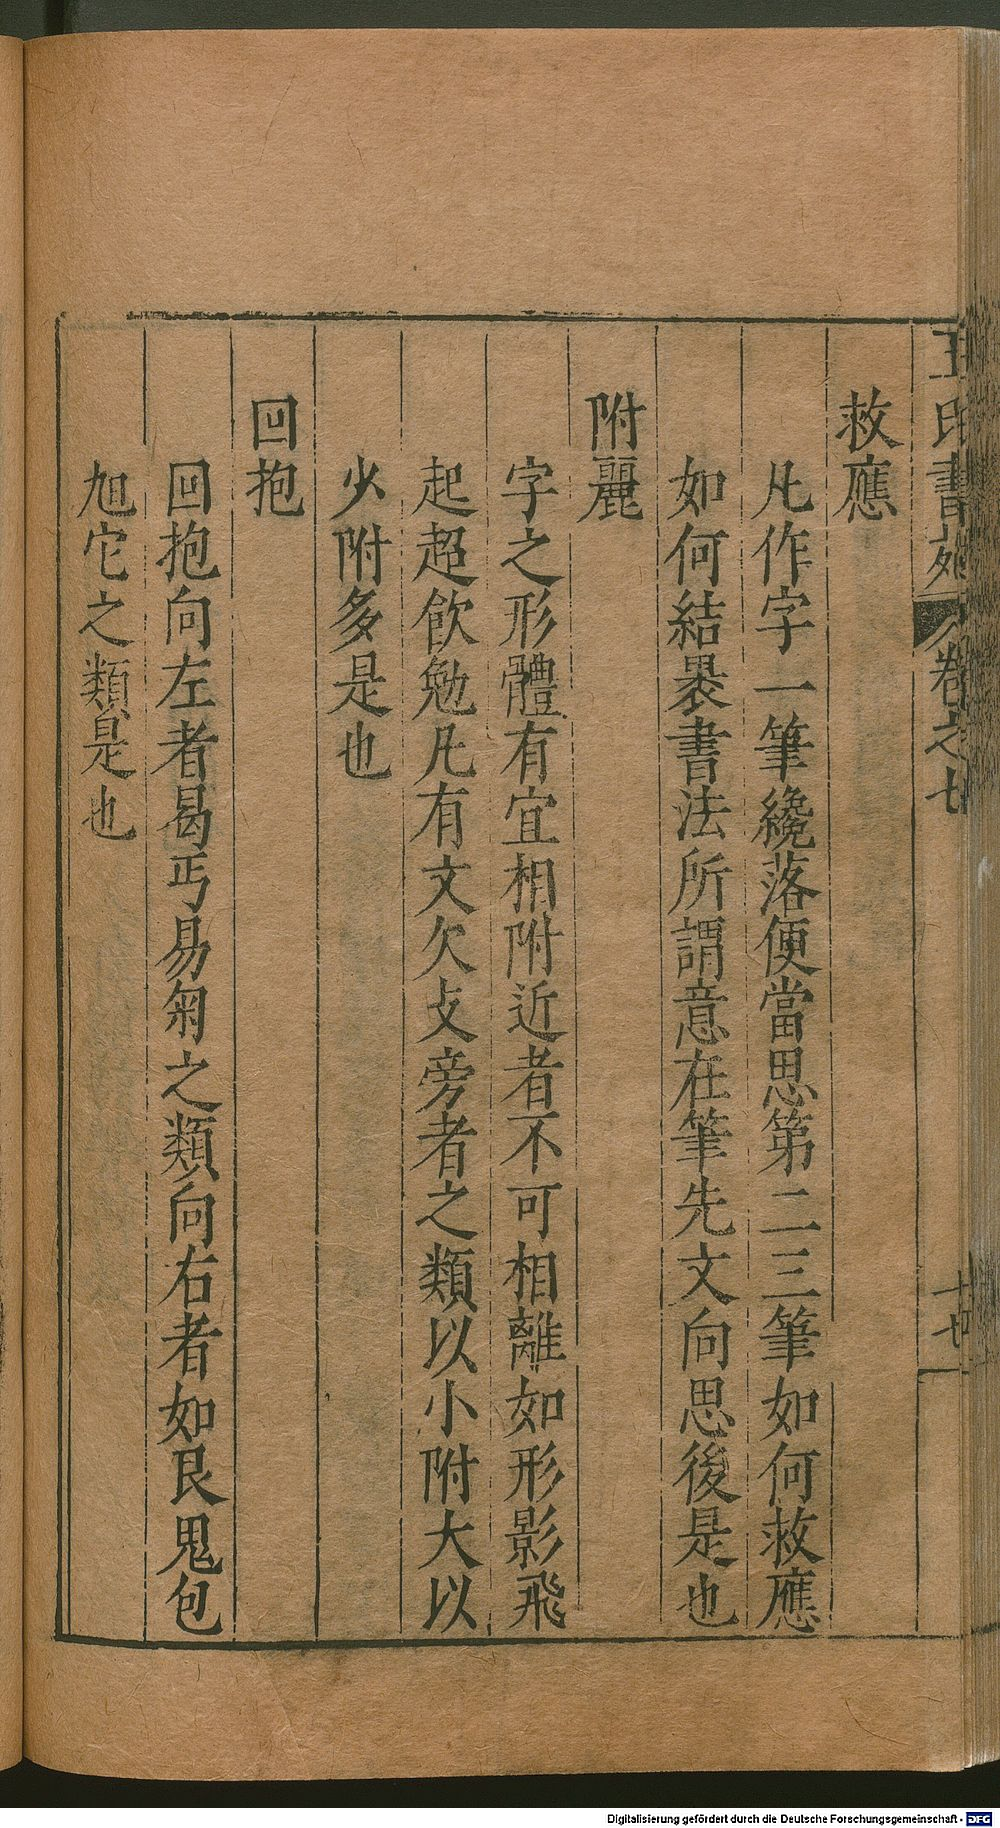 王氏書苑 卷之七 十七
救應
凡作字一筆纔落便當思第二三筆如何救應
如何結褁書法所謂意在筆先文向思後是也
附麗
字之形體有宜相附近者不可相離如形影飛
起超飮勉凡有文欠攴旁者之類以小附大以
少附多是也
回抱
回抱向左者曷丐易匊之類向右者如艮鬼包
旭它之類是也
Digitalisierung gefördert durch die Deutsche Forschungsgemeinschaft - DFG